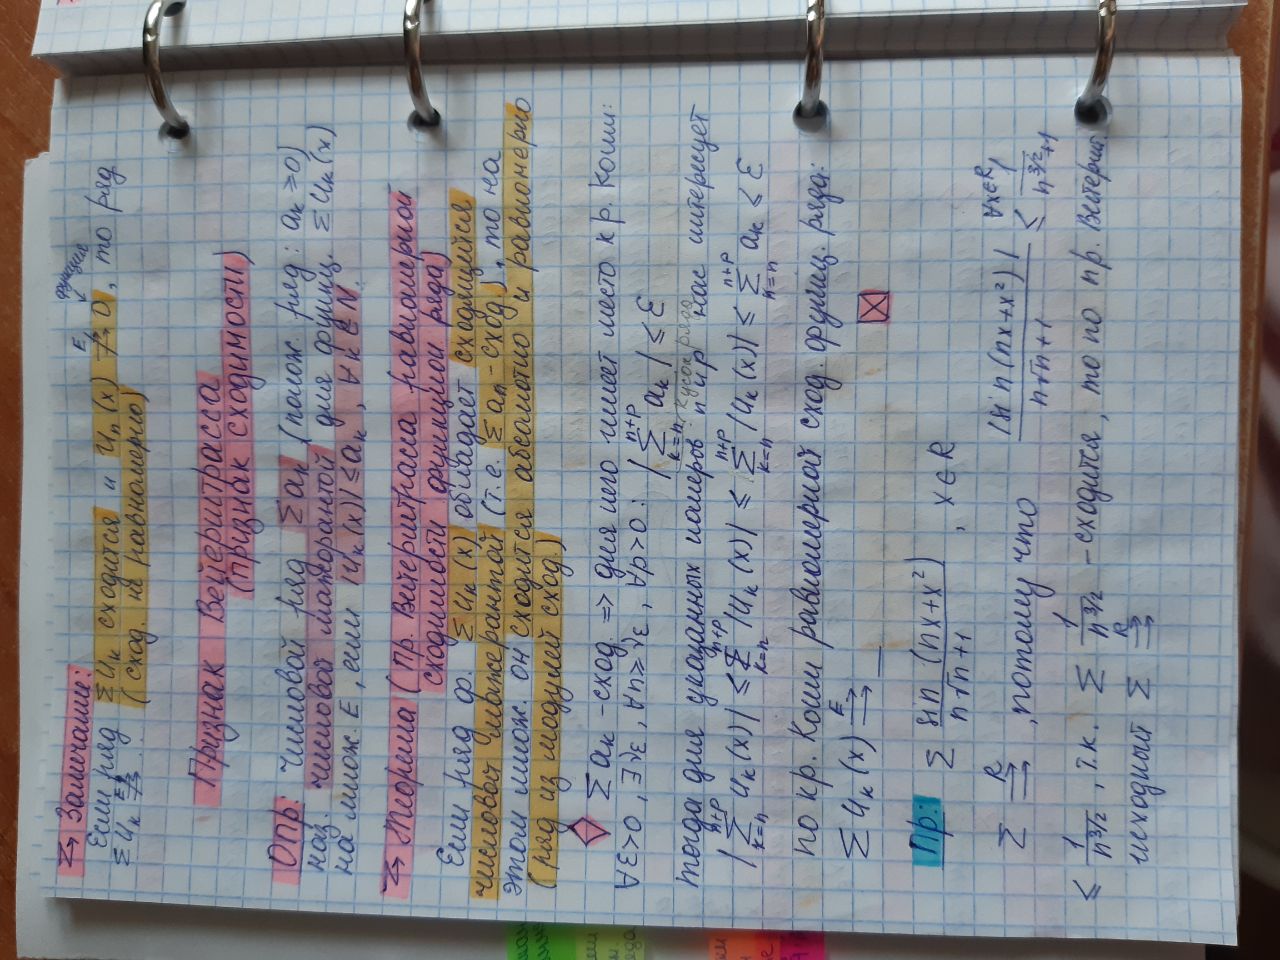 Замечание:
функция
Если ряд ΣUₖ сходится и Uₙ(x) ⇉̸ᴱ 0, то ряд
ΣUₖ ⇉̸ᴱ ... (сход. не равномерно)
Признак Вейерштрасса
(признак сходимости)
Опр: числовой ряд Σaₖ (полож. ряд: aₖ ≥ 0)
наз. числовой мажорантой для функц. ΣUₖ(x)
на множ. E, если |Uₖ(x)| ≤ aₖ, ∀k∈N.
Теорема (пр. Вейерштрасса равномерной
сходимости функцион. ряда)
Если ряд ф. ΣUₖ(x) обладает сходящейся
числовой мажерантой (т.е. Σaₙ - сход.), то на
этом множ. он сходится абсолютно и равномерно
(ряд из модулей сход.)
Σaₖ - сход. => для него имеет место кр. Коши:
|∑_{k=n}^{n+p} aₖ| ≤ ε
кусок ряда
тогда для указанных номеров n и p нас интересует
|∑_{k=n}^{n+p} Uₖ(x)| ≤ ∑_{k=n}^{n+p} |Uₖ(x)| ≤ ∑_{k=n}^{n+p} |Uₖ(x)| ≤ ∑_{n=n}^{n+p} aₖ ≤ ε
по кр. Коши равномерной сход. функц. ряда:
ΣUₖ(x) ⇉ᴱ _
Пр: Σ sin (nx+x²) / (n√n+1), x∈R
Σ ⇉ᴿ, потому что |sin(nx+x²)| / (n√n+1) ≤ 1/(n^{3/2}+1) ∀x∈R
≤ 1/n^{3/2}, т.к. Σ 1/n^{3/2} - сходится, то по пр. Вейершт.
исходный Σ ⇉ᴿ